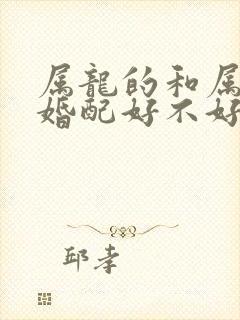 属龍的和属
婚配好不好
邱孝